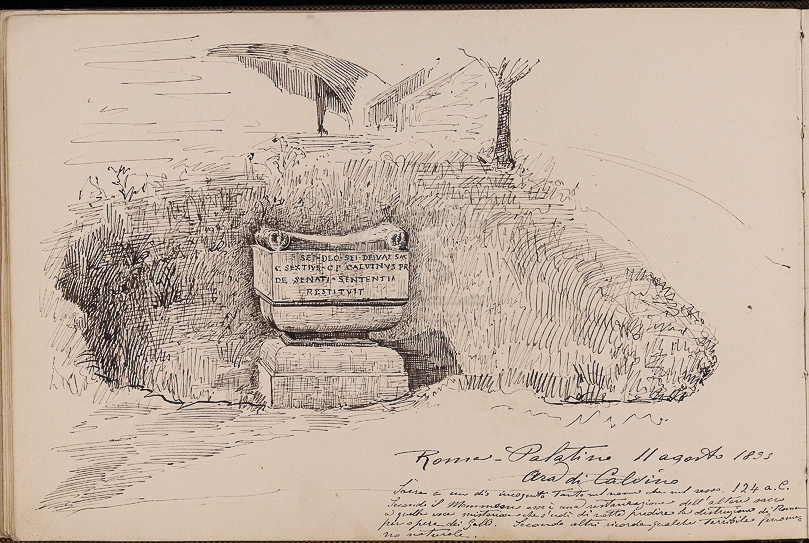 SEI·DEO·SEI·DEIVAE SAC
C. SEXTIVS·C·F· CALVINVS PR
DE SENATI·SENTENTIA
RESTITVIT
Roma - Palatino 11 agosto
Ara di Calvino
Sacra a un dio incognito tanto nel nome che nel sesso. 124 a.C.
Secondo il Mommsen essa è una restaurazione dell'altare sacro
a quella voce misteriosa che s'udì di notte predire la distruzione di Roma
per opera dei Galli. Secondo altri ricorda qualche terribile fenome
no naturale.